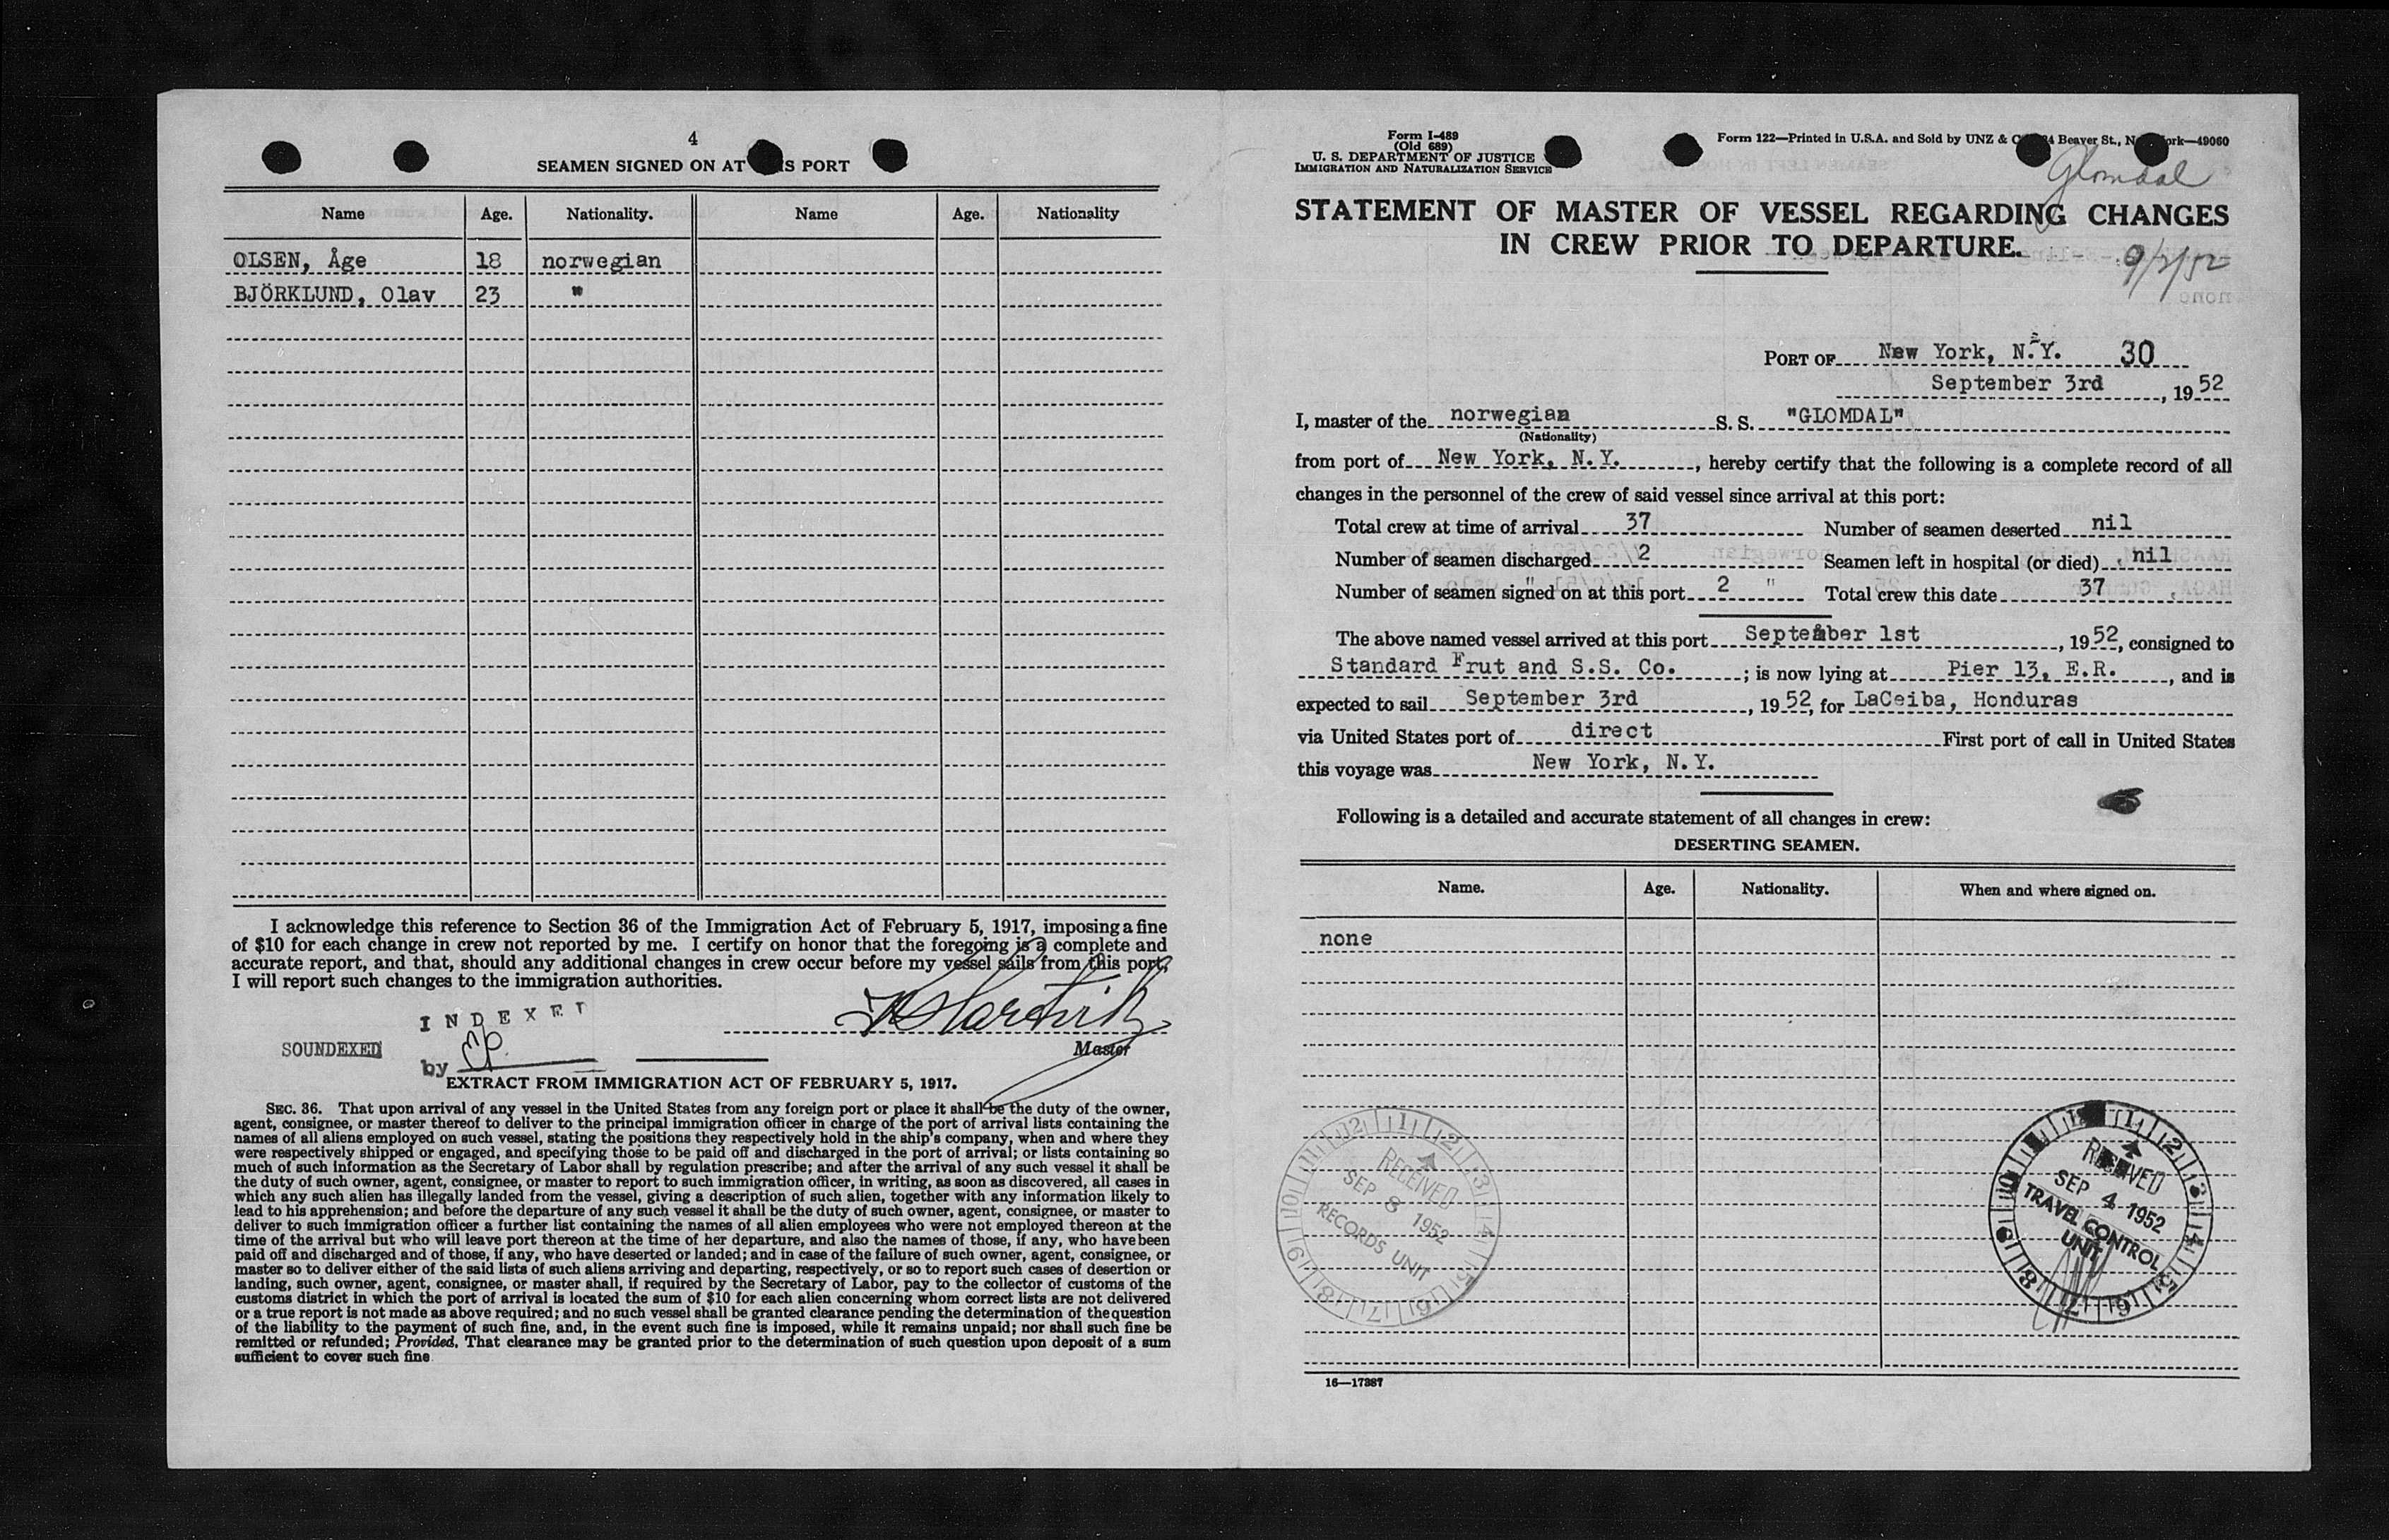 4
SEAMEN SIGNED ON AT THIS PORT
Name Age. Nationality. Name Age. Nationality
OLSEN, Åge 18 norwegian
BJÖRKLUND, Olav 23 "
I acknowledge this reference to Section 36 of the Immigration Act of February 5, 1917, imposing a fine
of $10 for each change in crew not reported by me. I certify on honor that the foregoing is a complete and
accurate report, and that, should any additional changes in crew occur before my vessel sails from this port,
I will report such changes to the immigration authorities.
INDEXED
SOUNDEXED
by
Master
EXTRACT FROM IMMIGRATION ACT OF FEBRUARY 5, 1917.
SEC. 36. That upon arrival of any vessel in the United States from any foreign port or place it shall be the duty of the owner,
agent, consignee, or master thereof to deliver to the principal immigration officer in charge of the port of arrival lists containing the
names of all aliens employed on such vessel, stating the positions they respectively hold in the ship's company, when and where they
were respectively shipped or engaged, and specifying those to be paid off and discharged in the port of arrival; or lists containing so
much of such information as the Secretary of Labor shall by regulation prescribe; and after the arrival of any such vessel it shall be
the duty of such owner, agent, consignee, or master to report to such immigration officer, in writing, as soon as discovered, all cases in
which any such alien has illegally landed from the vessel, giving a description of such alien, together with any information likely to
lead to his apprehension; and before the departure of any such vessel it shall be the duty of such owner, agent, consignee, or master to
deliver to such immigration officer a further list containing the names of all alien employees who were not employed thereon at the
time of the arrival but who will leave port thereon at the time of her departure, and also the names of those, if any, who have been
paid off and discharged and of those, if any, who have deserted or landed; and in case of the failure of such owner, agent, consignee, or
master so to deliver either of the said lists of such aliens arriving and departing, respectively, or so to report such cases of desertion or
landing, such owner, agent, consignee, or master shall, if required by the Secretary of Labor, pay to the collector of customs of the
customs district in which the port of arrival is located the sum of $10 for each alien concerning whom correct lists are not delivered
or a true report is not made as above required; and no such vessel shall be granted clearance pending the determination of the question
of the liability to the payment of such fine, and, in the event such fine is imposed, while it remains unpaid; nor shall such fine be
remitted or refunded; Provided, That clearance may be granted prior to the determination of such question upon deposit of a sum
sufficient to cover such fine
Form I-489
(Old 689)
U. S. DEPARTMENT OF JUSTICE
IMMIGRATION AND NATURALIZATION SERVICE
Form 122—Printed in U.S.A. and Sold by UNZ & Beaver St., New York—49060
Glomdal
STATEMENT OF MASTER OF VESSEL REGARDING CHANGES
IN CREW PRIOR TO DEPARTURE.
9/2/52
PORT OF New York, N.Y. 30
September 3rd, 1952
I, master of the norwegian S. S. "GLOMDAL"
(Nationality)
from port of New York, N.Y., hereby certify that the following is a complete record of all
changes in the personnel of the crew of said vessel since arrival at this port:
Total crew at time of arrival 37 Number of seamen deserted nil
Number of seamen discharged 2 Seamen left in hospital (or died) nil
Number of seamen signed on at this port 2 Total crew this date 37
The above named vessel arrived at this port September 1st, 1952, consigned to
Standard Frut and S.S. Co. ; is now lying at Pier 13, E.R., and is
expected to sail September 3rd, 1952, for LaCeiba, Honduras
via United States port of direct First port of call in United States
this voyage was New York, N.Y.
Following is a detailed and accurate statement of all changes in crew:
DESERTING SEAMEN.
Name. Age. Nationality. When and where signed on.
none
RECEIVED
SEP 8 1952
RECORDS UNIT
RECEIVED
SEP 4 1952
TRAVEL CONTROL
UNIT
16—17387